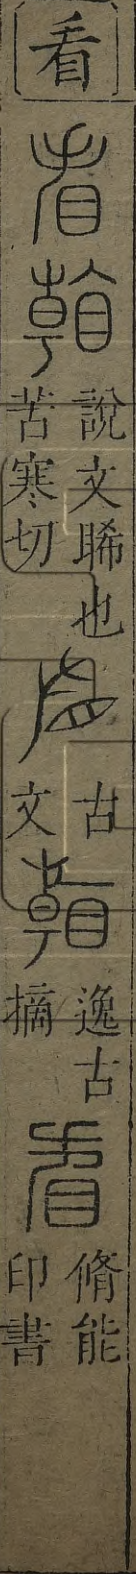 看
看
𥉼
說文睎也
苦寒切
古
文
逸古
摘
脩能
印書